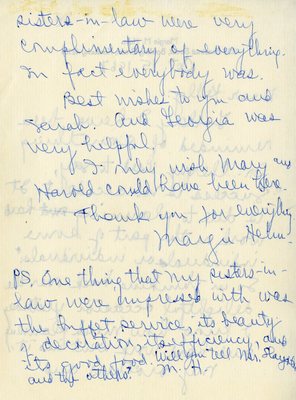 sisters-in-law were very
complimentary of everything.
In fact everybody was.
Best wishes to you and
Sarah. And Georgia was
very helpful.
I only wish Mary and
Harold could have been here.
Thank you for everything
Margie Helm.
PS. One thing that my sisters-in-
law were impressed with was
the buffet service, its beauty
of decoration, its efficiency, and
its good food. Will you tell Mrs.
and the others? M. H.